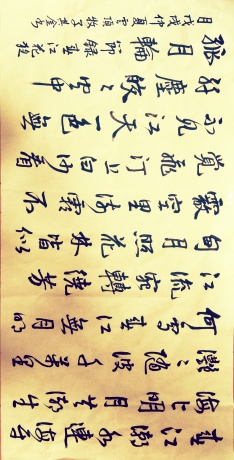 春江潮水連海平
海上明月共潮生
灩灩隨波千萬里
何處春江無月明
江流宛轉繞芳
甸月照花林皆似
霰空里流霜不
覺飛汀上白沙看
不見江天一色無
纖塵皎皎空中
孤月輪 節錄春江花月夜
戊戌仲夏